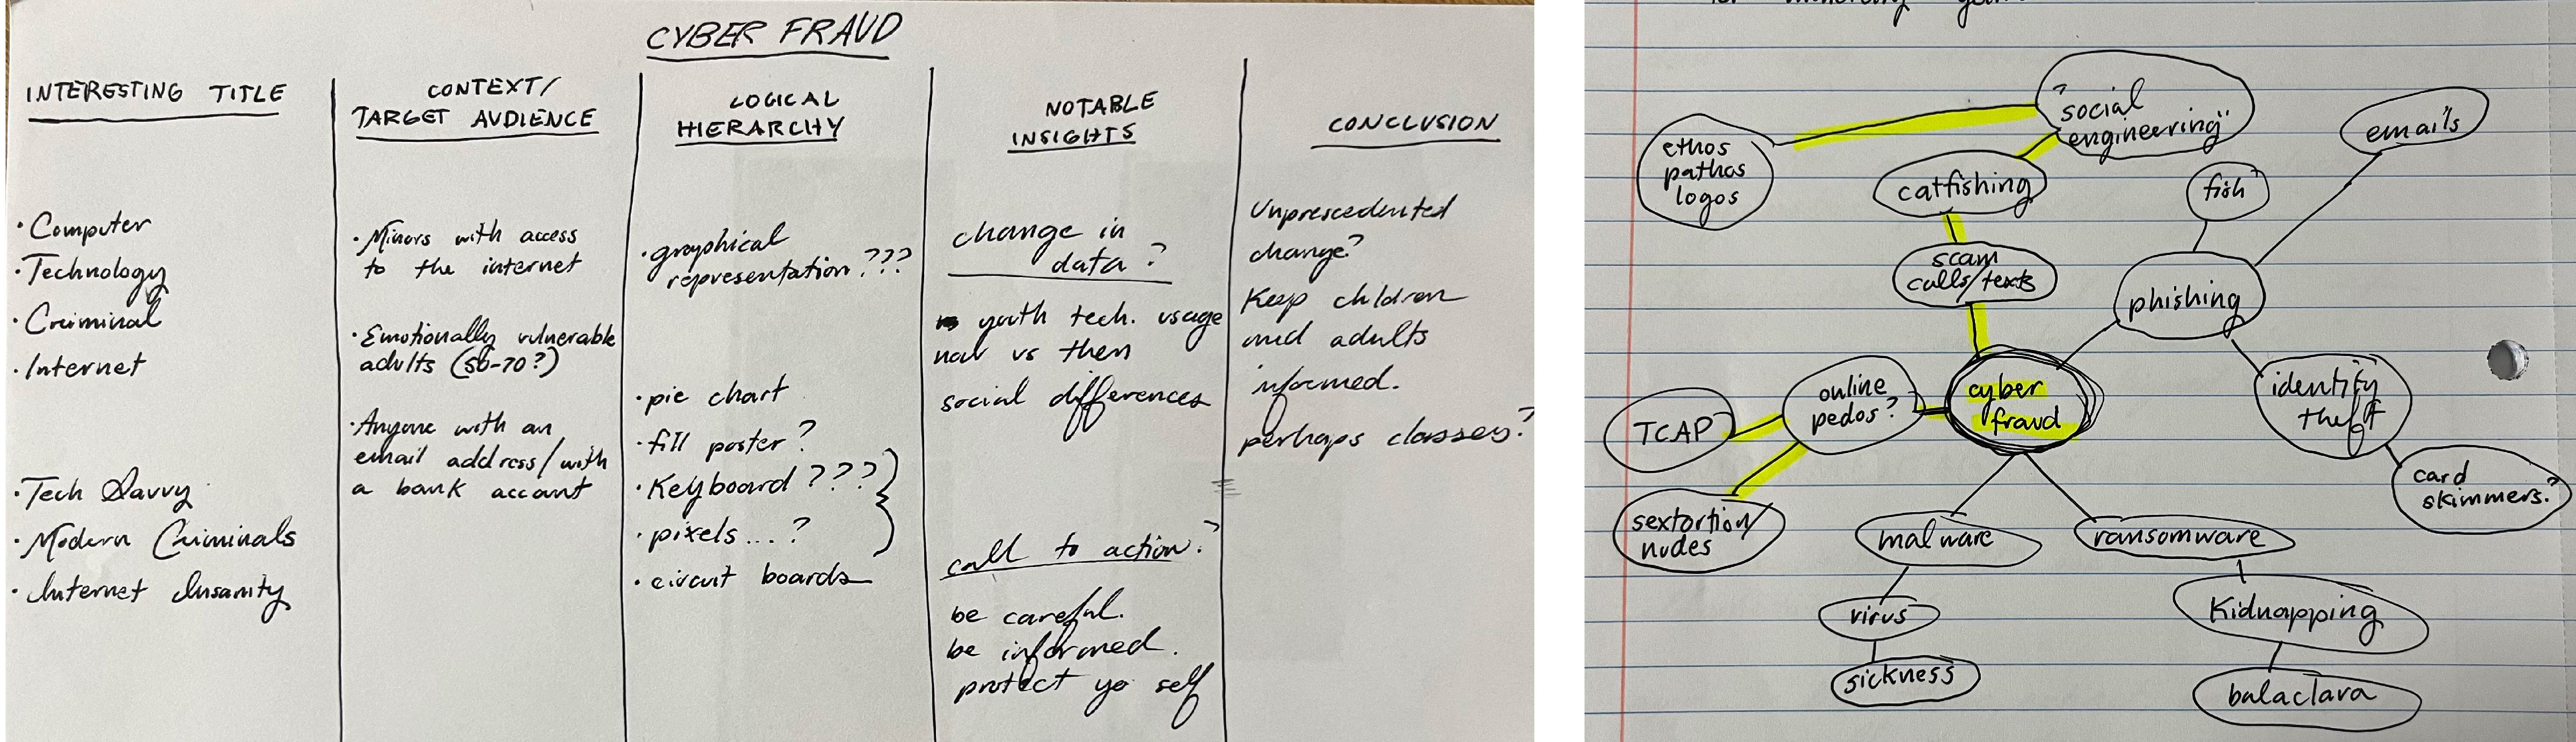 CYBER FRAUD
INTERESTING TITLE
• Computer
• Technology
• Criminal
• Internet
• Tech Savvy
• Modern Criminals
• Internet Insanity
CONTEXT/
TARGET AUDIENCE
• Minors with access
to the internet
• Emotionally vulnerable
adults (50-70?)
• Anyone with an
email address/with
a bank account
LOGICAL
HIERARCHY
• graphical
representation???
• pie chart
• fill poster?
• Keyboard ???
• pixels...?
• circuit boards
NOTABLE
INSIGHTS
change in
data?
youth tech. usage
now vs then
social differences
call to action?
be careful.
be informed.
protect yo self
CONCLUSION
Unprescedented
change?
Keep children
and adults
informed.
perhaps classes?
"social
engineering"
ethos
pathos
logos
catfishing
scam
calls/texts
emails
fish
phishing
online
pedos?
cyber
fraud
identity
theft
TCAP
card
skimmers?
sextortion/
nudes
malware
ransomware
virus
Kidnapping
sickness
balaclava